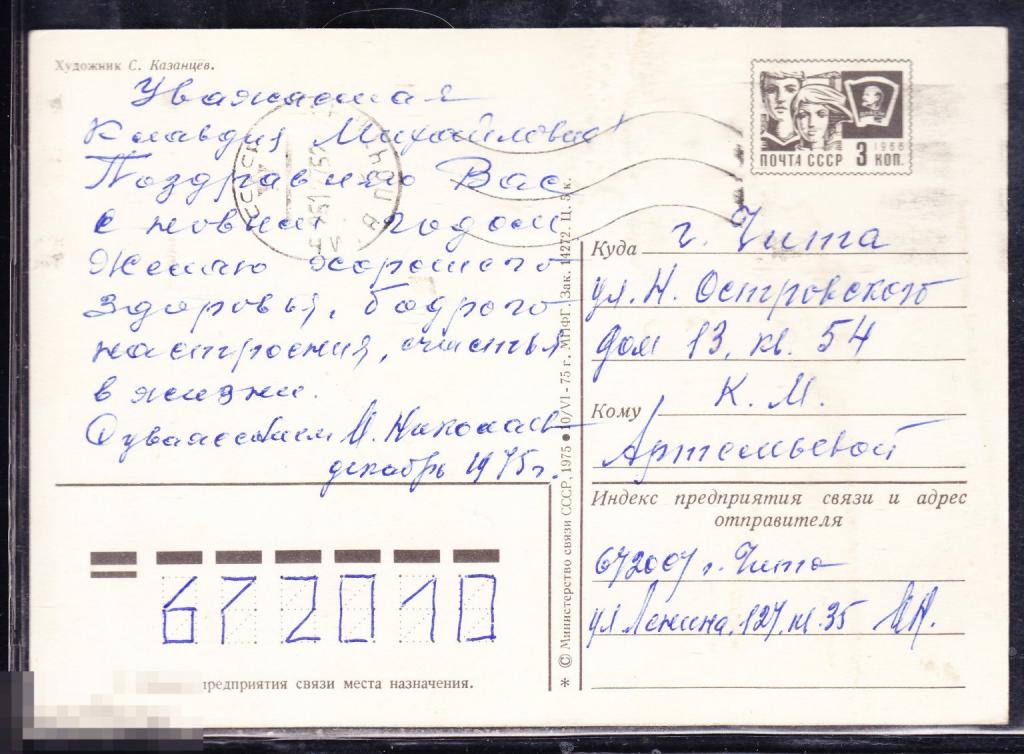 Художник С. Казанцев.
Уважаемая
Клавдия Михайловна!
Поздравляю Вас
с новым годом
Желаю хорошего
здоровья, бодрого
настроения, счастья
в жизни.
С уважением М. Николаев
декабрь 1975 г.
ПОЧТА СССР 3 КОП.
1966
Куда г. Чита
ул. Н. Островского
дом 13, кв. 54
Кому К. М.
Артемьевой
Индекс предприятия связи и адрес
отправителя
672007 г. Чита
ул Ленина. 127. кв. 35 МН.
672010
предприятия связи места назначения.
* © Министерство связи СССР, 1975 ● 10/VI-75 г. МПФГ. Зак. 14272. Ц. 5 к.